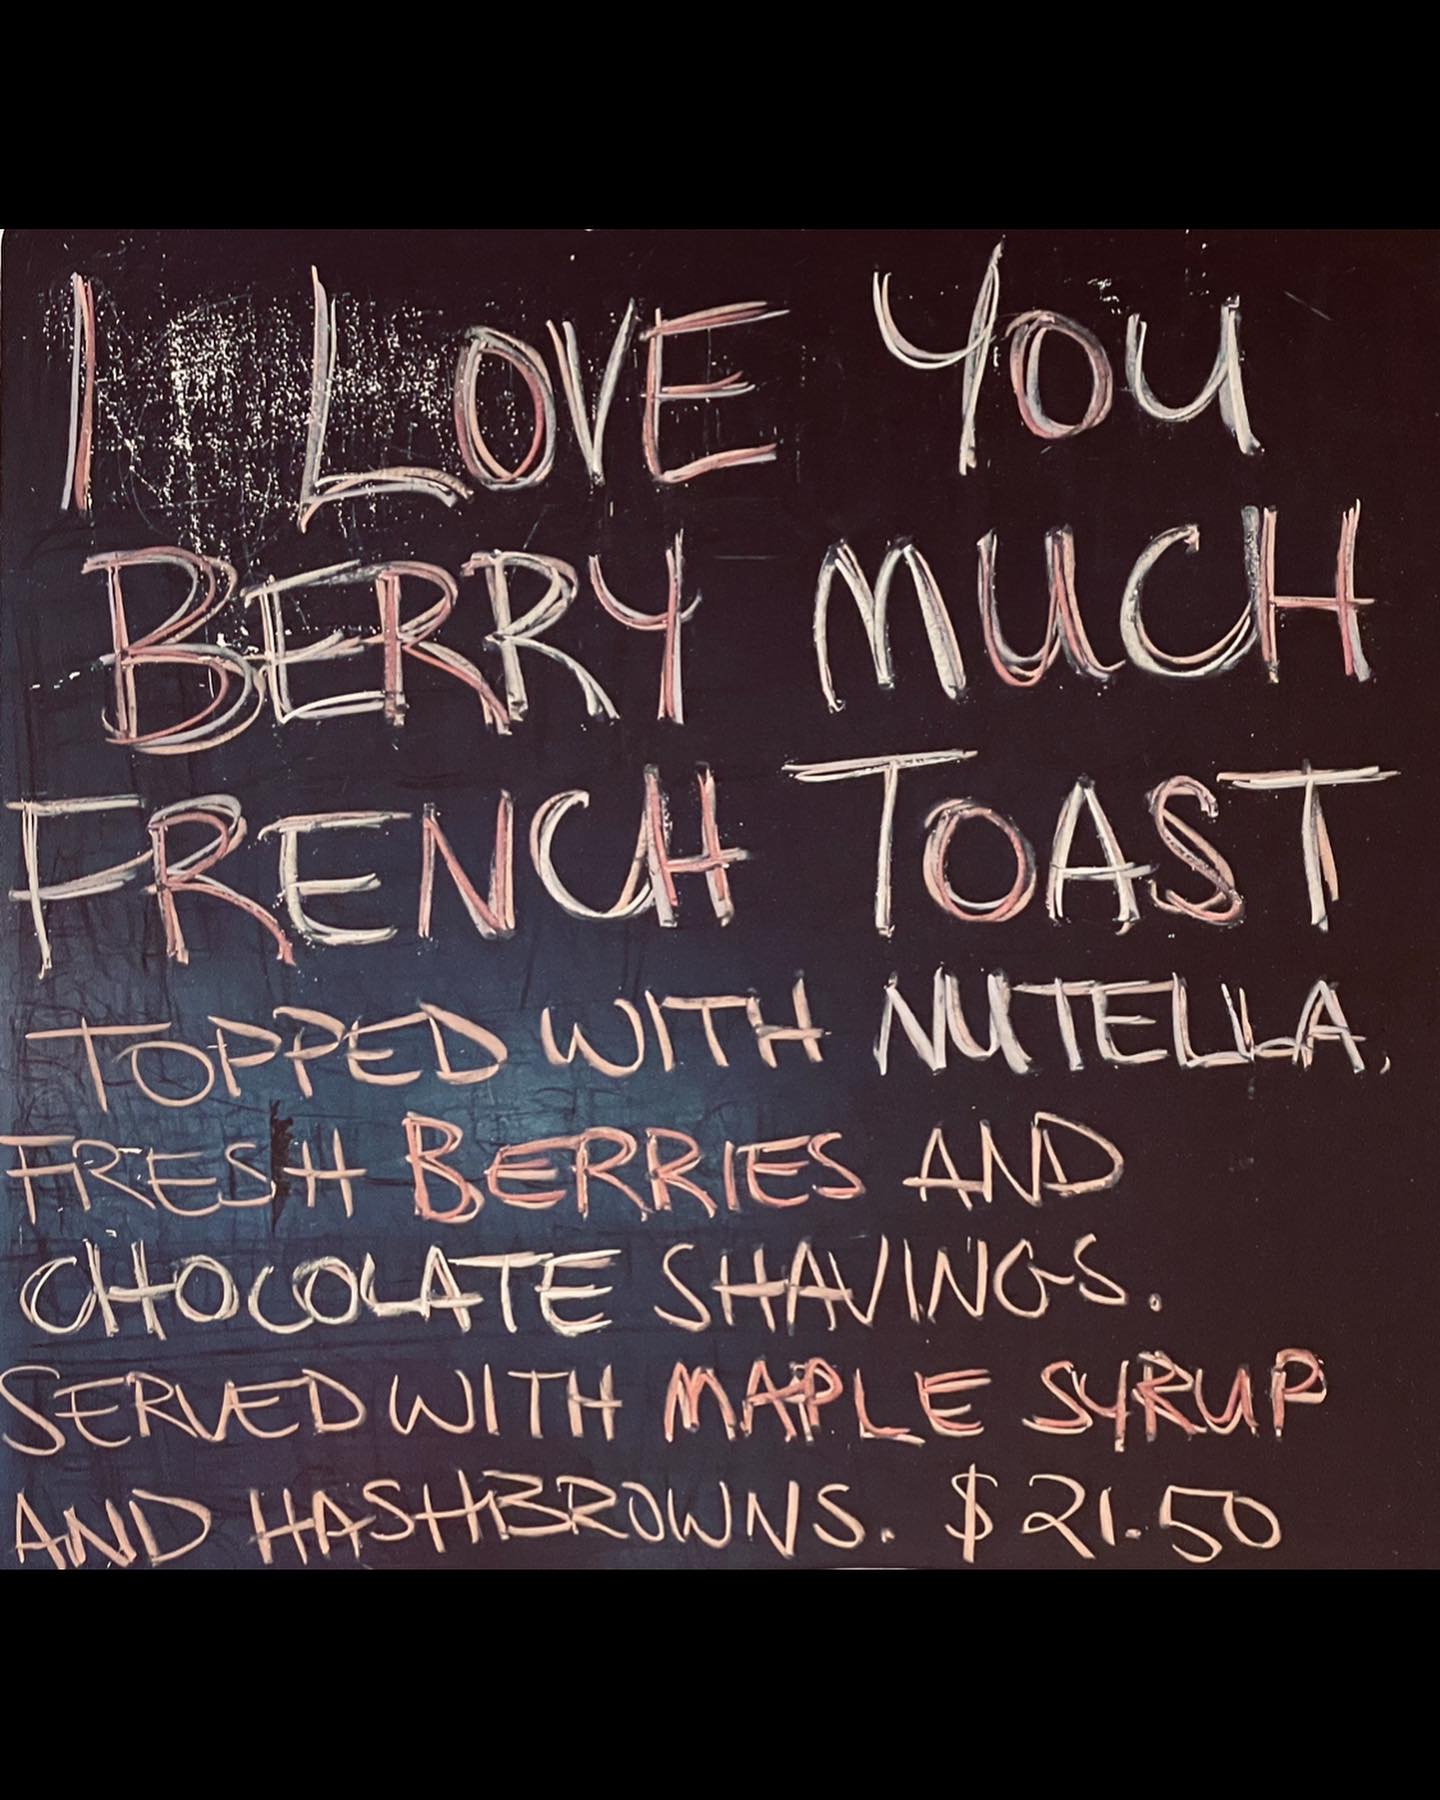 I LOVE YOU
BERRY MUCH
FRENCH TOAST
TOPPED WITH NUTELLA,
FRESH BERRIES AND
CHOCOLATE SHAVINGS.
SERVED WITH MAPLE SYRUP
AND HASHBROWNS. $21.50